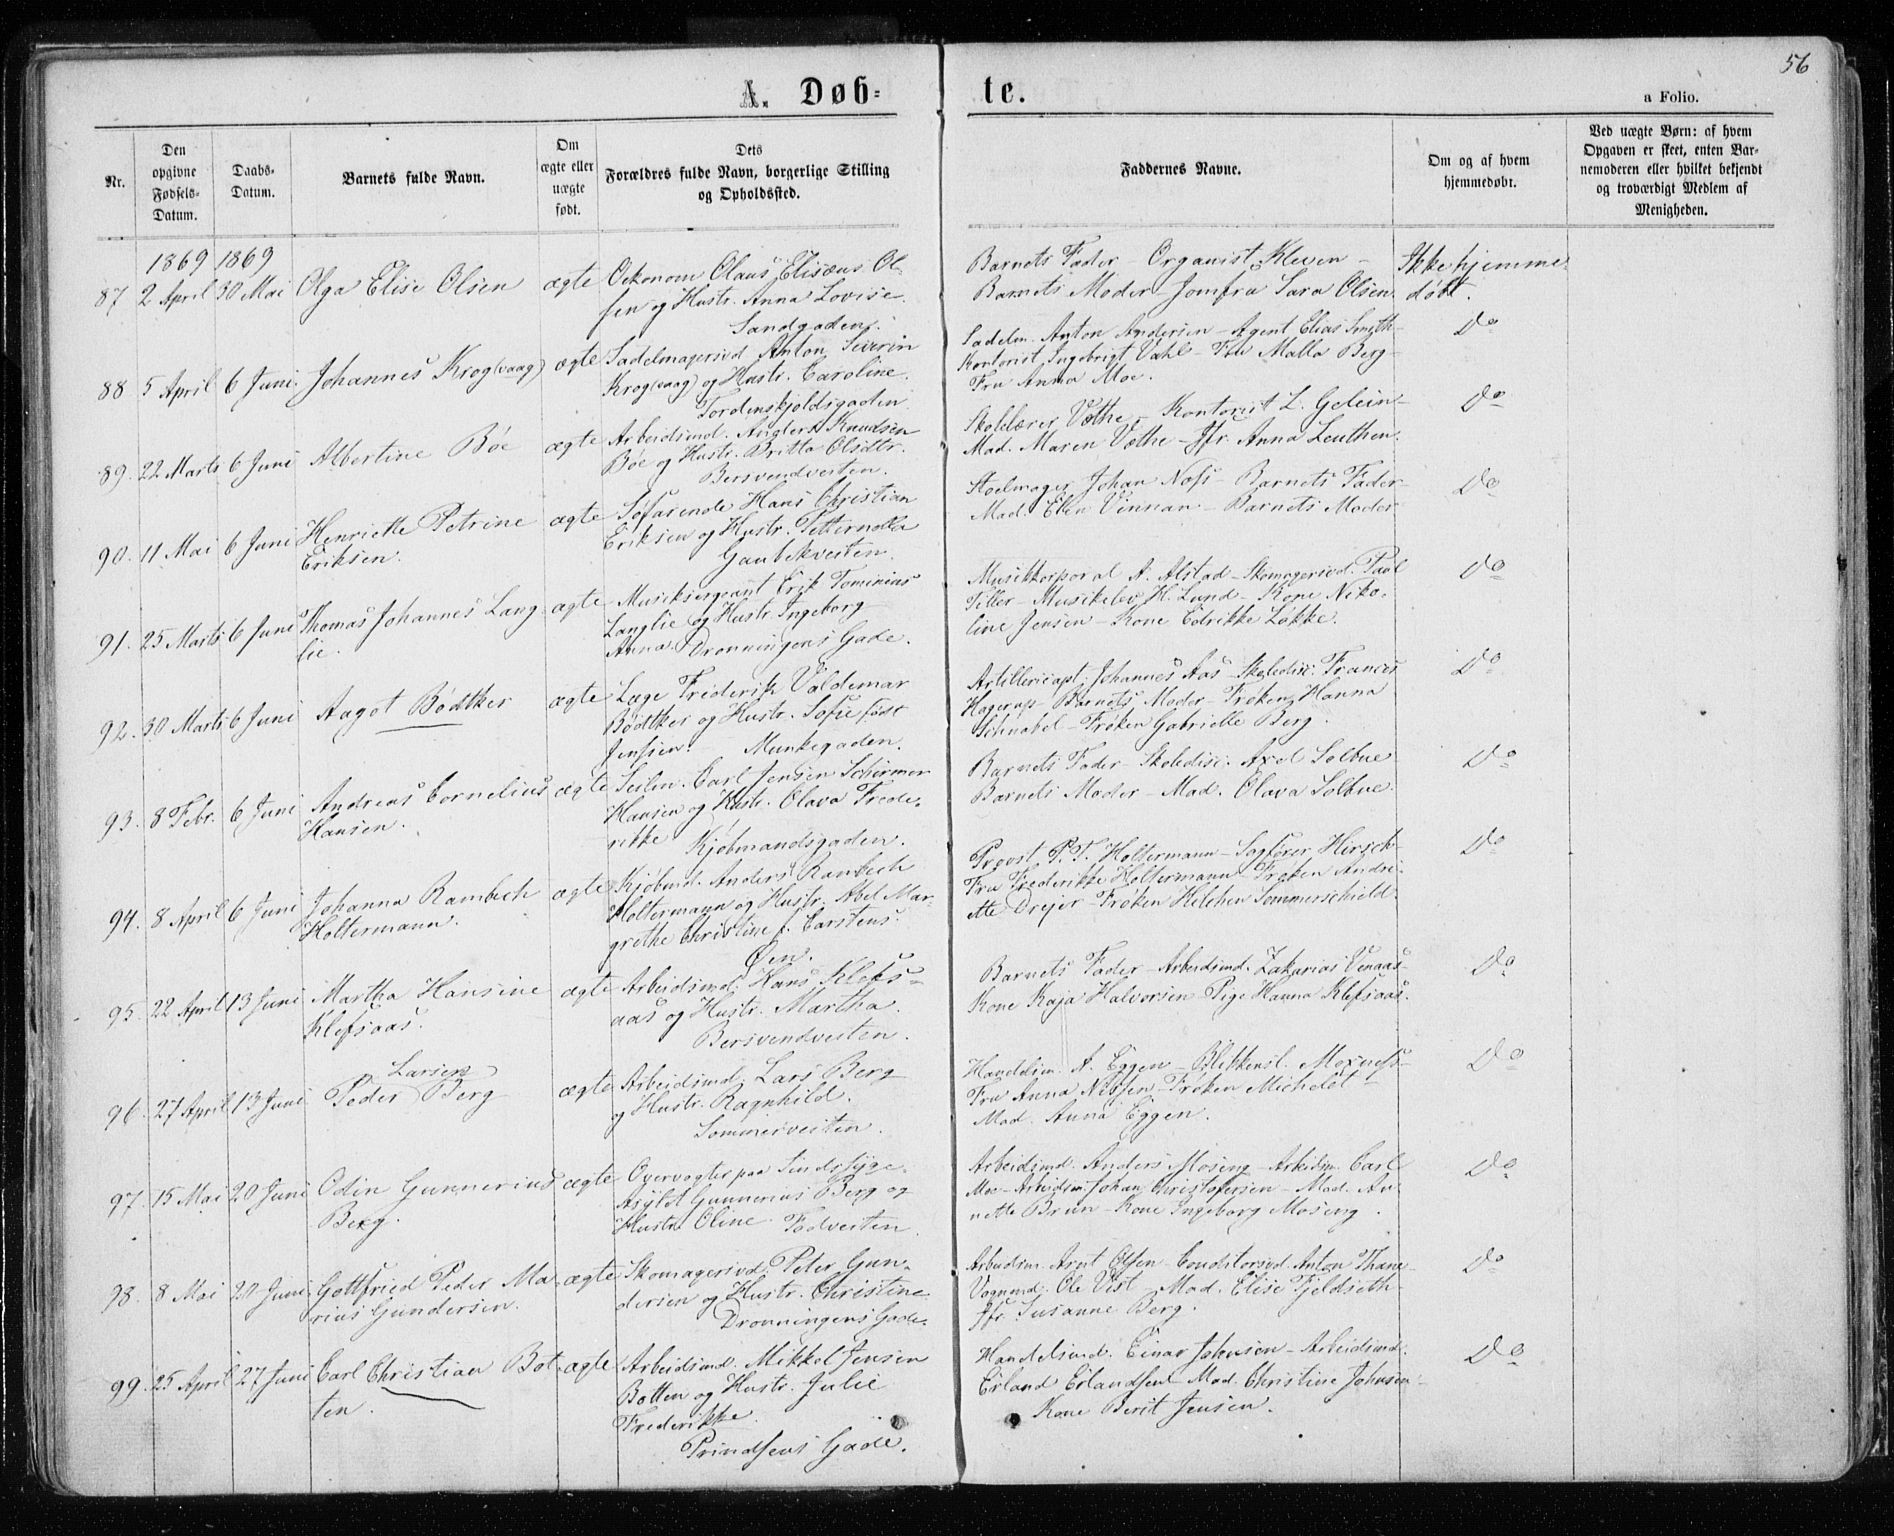 56
A. Døb- te.
a Folio.
Nr.
Den opgivne Fødsels-Datum.
Daabs-Datum.
Barnets fulde Navn.
Om ægte eller uægte født.
Dets Forældres fulde Navn, borgerlige Stilling og Opholdssted.
Faddernes Navne.
Om og af hvem hjemmedøbt.
Ved uægte Børn: af hvem Opgaven er skeet, enten Barnemoderen eller hvilket bekjendt og troværdigt Medlem af Menigheden.
1869 1869
87 2 April 30 Mai Olga Elise Olsen ægte Oekonom Olaus Elisæus Ol-
sen og Hustr. Anna Lovise
Sandgaden.
Barnets Fader - Organist Kleven -
Barnets Moder - Jomfru Sara Olsen.
Ikke hjemme-
døbt.
88 5 April 6 Juni Johannes Krog(vaag) ægte Sadelmagersvd. Anton Severin
Krog(vaag) og Hustr. Caroline.
Tordenskjoldsgaden
Sadelm. Anton Andersen - Agent Elias Smith -
Kontorist Ingebrigt Vahl - Frk Malla Berg -
Fru Anna Moe.
Do
89. 22 Marts 6 Juni Albertine Böe ægte Arbeidsmd. Knudsen
Böe og Hustr. Britta Olsdtr.
Bersvendvesten.
Skolelærer Vothe - Kontorist L. Gelein -
Mad. Maren Vothe - Jfr. Anna Leuthen.
Do
90. 11 Mai 6 Juni Henriette Petrine
Eriksen. ægte Söfarende Hans Christian
Eriksen og Hustr. Petternella
Gaubækvesten.
Stolmager Johan Næss - Barnets Fader -
Mad. Ellen Vinnan - Barnets Moder
Do
91. 25 Marts 6 Juni Thomas Johannes Lang-
lie. ægte Musiksergeant Erik Tominius
Langlie og Hustr. Ingeborg
Anna. Dronningens Gade.
Musikkorporal A. Alstad - Skomagersvd. Paul
Tiller - Musikelev H. Lund - Kone Niko-
line Jensen - Kone Edrikke Løkke.
Do
92. 30 Marts 6 Juni Aagot Bödtker ægte Læge Frederik Valdemar
Bödtker og Hustr. Sofie født
Jenssen. - Munkegaden.
Artillericapt. Johannes Aas - Skoledisc. Frances
Hagerup - Barnets Moder - Frøken Hanna
Schnabel - Frøken Gabrielle Berg.
Do
93. 8 Febr. 6 Juni Andreas Cornelius
Hansen. ægte Seilm. Carl Jensen Schirmer
Hansen og Hustr. Olava Frede-
rikke Kjöbmandsgaden.
Barnets Fader - Skoledisc. Axel Solbue
Barnets Moder - Mad. Olava Solbue.
Do
94. 8 April 6 Juni Johanna Rambech
Holtermann. ægte Kjöbmd. Anders Rambech
Holtermann og Hustr. Abel Mar-
grethe Christine f. Carstens.
Øen.
Provst P. T. Holtermann - Sagfører Hirsch -
Fru Frederikke Holtermann - Frøken Andri-
ette Drejer - Frøken Helchen Sommerschield.
Do
95. 22 April 13 Juni Martha Hansine
Klefsaas. ægte Arbeidsmd. Hans Klefs-
aas og Hustr. Martha.
Bersvendvesten.
Barnets Fader - Arbeidsmd. Zakarias Venaas -
Kone Kaja Halvorsen Pige Hanna Klefsaas.
Do
96. 27 April 13 Juni Larsen
Peder Berg ægte Arbeidsmd. Lars Berg
og Hustr. Ragnhild.
Sommervesten.
Handelsm. A. Eggen - Blikkensl. Moxness -
Fru Anna Nissen - Frøken Michelet -
Mad. Anna Eggen.
Do
97. 15 Mai 20 Juni Odin Gunnerius
Berg. ægte Overvogter paa Sindssyge-
Asylet Gunnerius Berg og
Hustr. Oline. Fadvesten.
Arbeidsmd. Anders Moseng - Arbeidsm. Carl
Moe - Arbeidsm. Johan Christofersen - Mad. An-
nette Brun - Kone Ingeborg Moseng.
Do
98. 8 Mai 20 Juni Gottfried Peder Ma-
rius Gundersen. ægte Skomagersvd. Peter Gun-
dersen og Hustr. Christine
Dronningens Gade.
Arbeidsm. Arnt Olsen - Conditorsvd. Anton Thane -
Vognmd. Ole Vist - Mad. Elise Fjeldseth -
Jfr. Susanne Berg.
Do
99. 25 April 27 Juni Carl Christian Bot-
ten. ægte Arbeidsmd. Mikkel Jensen
Botten og Hustr. Julie
Frederikke.
Prindsens Gade.
Handelsmd. Einar Johnsen - Arbeidsmd.
Erland Erlandsen - Mad. Christine Johnsen -
Kone Berit Jensen.
Do